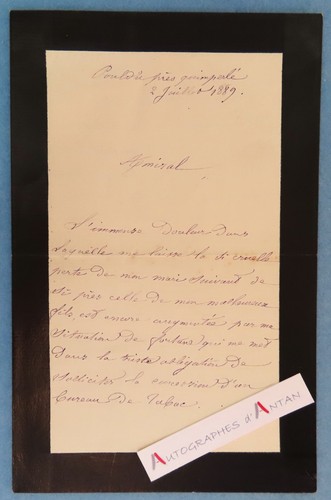 Pouldu près quimperlé
2 Juillet 1889.
Amiral
L'immense Douleur Dans
laquelle me laisse la si cruelle
perte de mon mari suivant de
si près celle de mon malheureux
fils est encore augmentée par ma
situation de fortune qui me met
Dans la triste obligation de
solliciter la concession D'un
Bureau De Tabac.
AUTOGRAPHES d'ANTAN